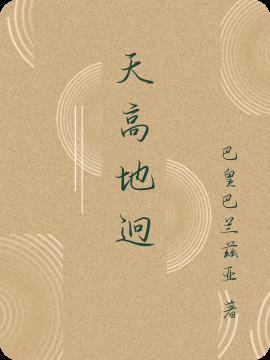 天高地迥
巴皇巴兰兹亚 著